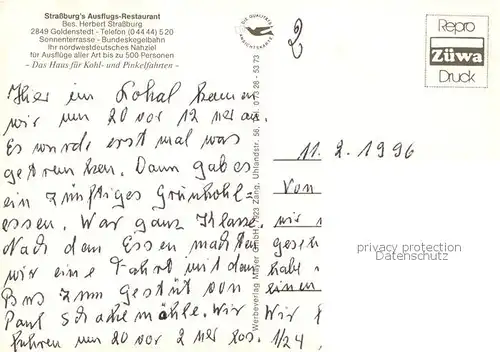 Straßburg's Ausflugs-Restaurant
Bes. Herbert Straßburg
2849 Goldenstedt - Telefon (0 44 44) 5 20
Sonnenterrasse - Bundeskegelbahn
Ihr nordwestdeutsches Nahziel
für Ausflüge aller Art bis zu 500 Personen
- Das Haus für Kohl- und Pinkelfahrten -
Hier im Lokal kamen
wir um 20 vor 12 Uer an.
Es wurde erst mal was
getrunken. Dann gab es
ein zünftiges Grünkohl=
essen. War ganz Klasse.
Nach dem Essen machten
wir eine Fahrt mit dem
Bus zum gestüt von
Paul Schockemöhle. Wir
fuhren um 20 vor 2 Uer los.
Werbeverlag Mayer GmbH, 7923 Zang, Uhlandstr. 56, Tel. 0 73 28 - 53 73
DIE QUALITÄTS
ANSICHTSKARTE
2
Repro
Züwa
Druck
11. 2. 1996
Von
wir
gesch
habe
einen
Wir
1/24
privacy protection
Datenschutz